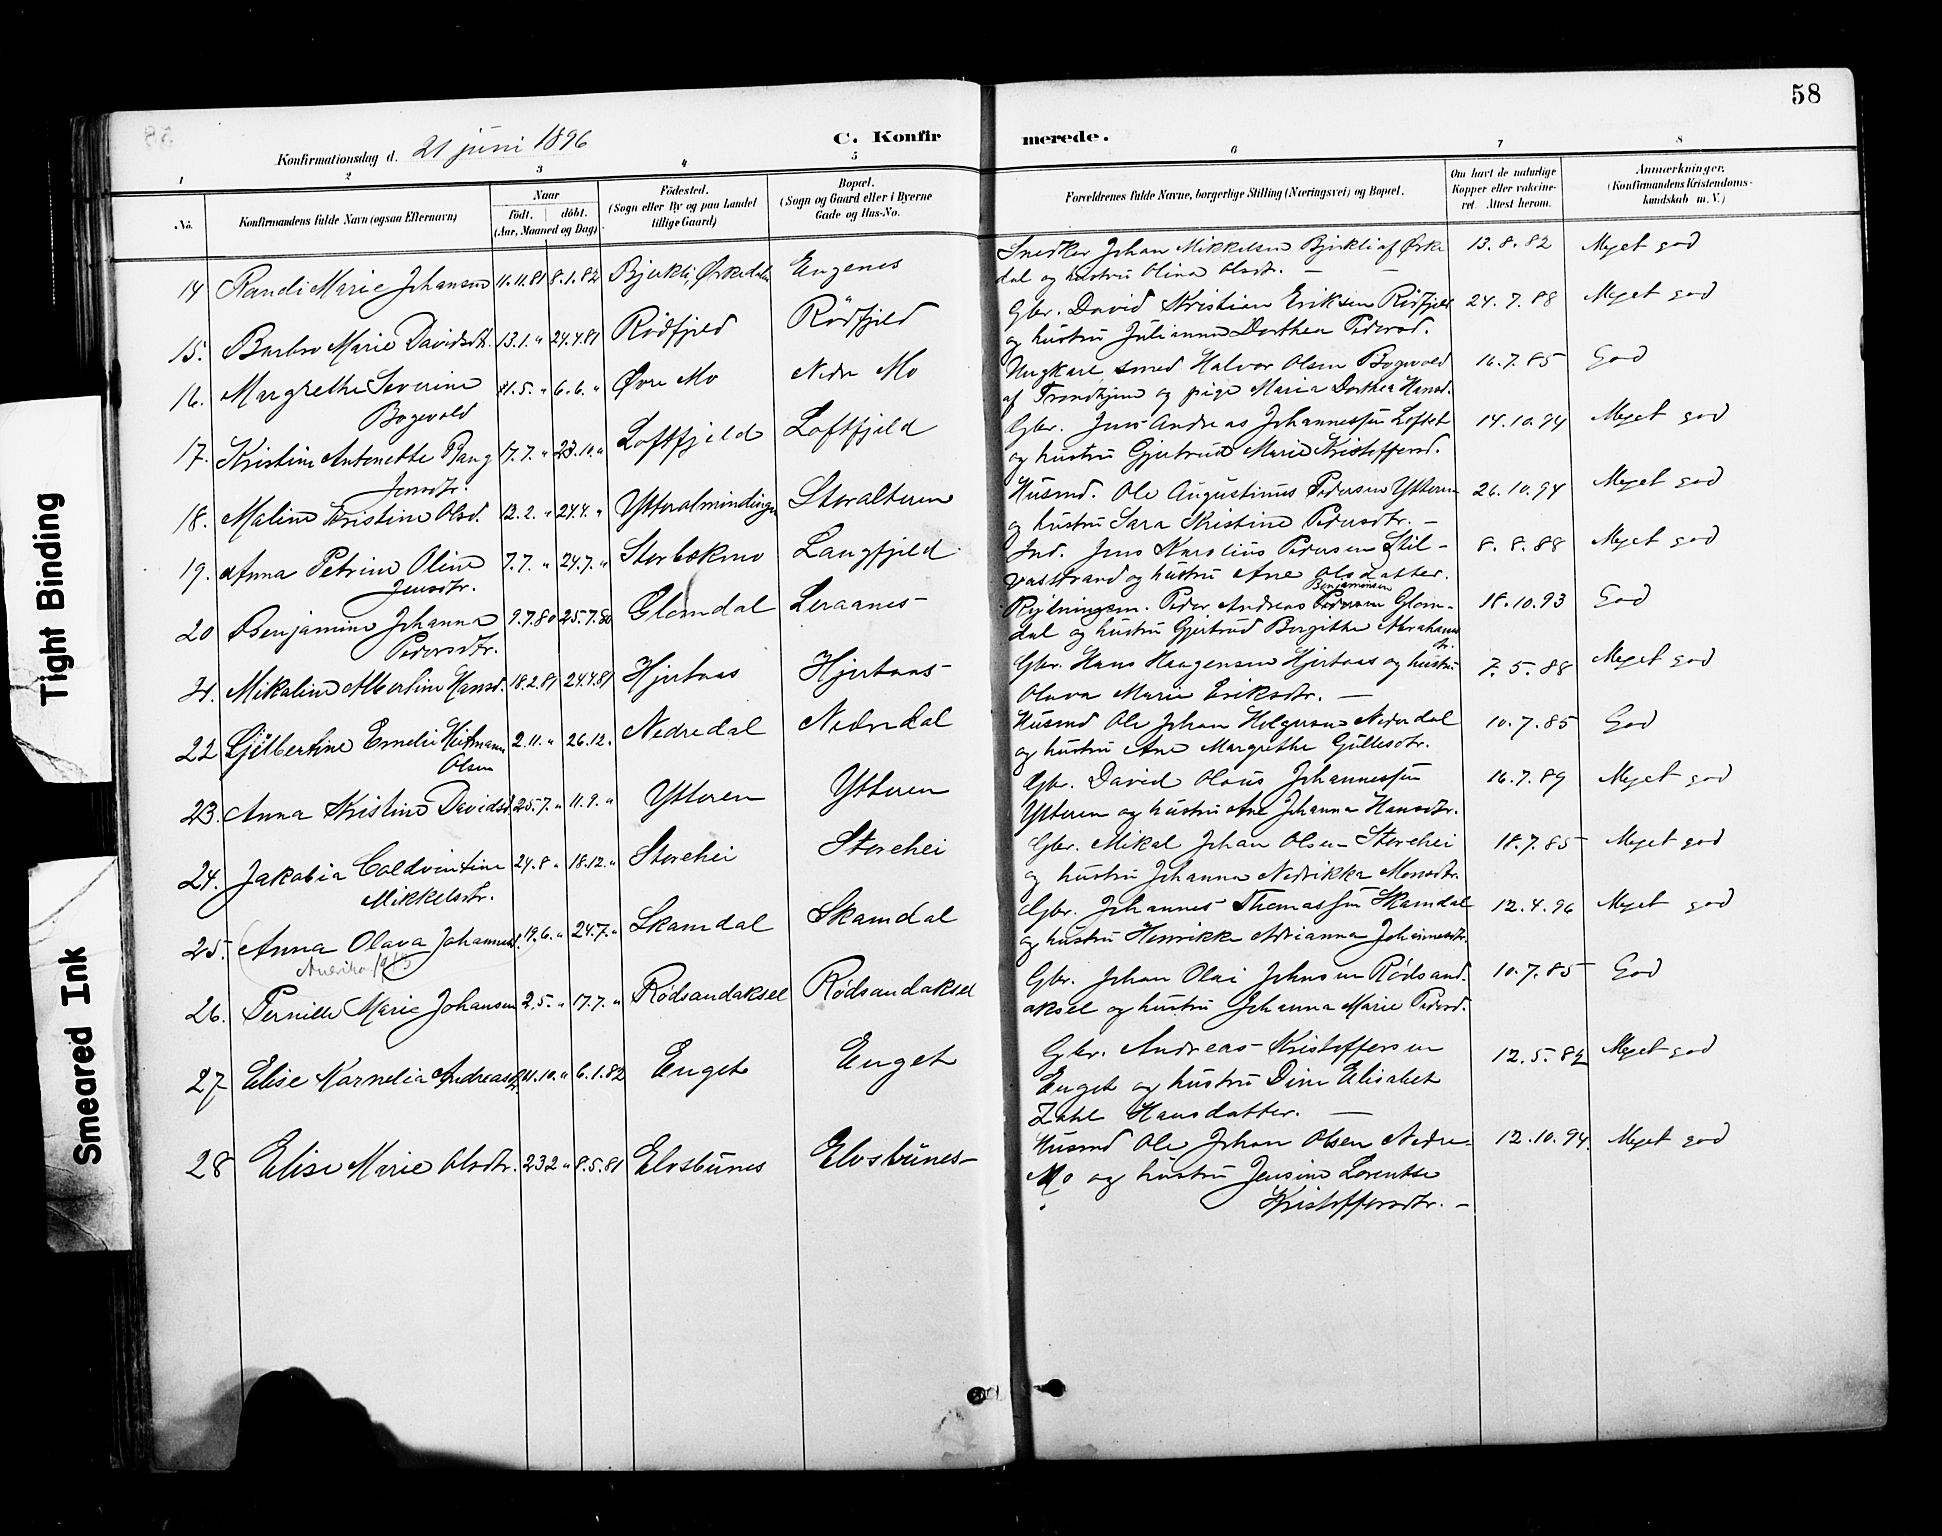 58
Konfirmationsdag d. 21 juni 1896
C. Konfir merede.
1 2 3 4 5 6 7 8
No.
Konfirmandens fulde Navn (ogsaa Efternavn)
Naar
født. døbt.
(Aar, Maaned og Dag)
Fødested.
(Sogn eller By og paa Landet
tillige Gaard)
Bopæl.
(Sogn og Gaard eller i Byerne
Gade og Hus-No.
Forældrenes fulde Navne, borgerlige Stilling (Næringsvei) og Bopæl.
Om havt de naturlige
Kopper eller vaksine-
ret. Attest herom.
Anmærkninger.
(Konfirmandens Kristendoms-
kundskab m. V.)
14 Randi Marie Johansen 11.11.81 8.1.82 Bjerkli, Ørkedalen Engenes Snedker Johan Mikkelsen Bjerkli af Ørke 13.8.82 Meget god
dal og hustru Olina Olsdtr. —
15. Barbro Marie Davidsdt. 13.1. " 24.4.81 Rödfjeld Rödfjeld Gbr. David Kristian Eriksen Rödfjeld 24.7.88 Meget god
og hustru Julianna Dorthea Pedersd.
16. Margrethe Severine 11.5. " 6.6. " Øvre Mo Nedre Mo Ungkarl smed Halvor Olsen Bogevold 16.7.85 God
Bogevold af Trondhjem og pige Maria Dorthea Hansd.
17. Kristine Antonette Bang 17.7. " 23.10. " Loftfjeld Loftfjeld Gbr. Jens Andreas Johannessen Loftet 14.10.94 Meget god
Jensdtr. og hustru Gjertrud Marie Kristoffersd.
18. Maline Kristine Olsd. 12.2. " 24.4. " Ytteralmindingen Storalteren Husmd. Ole Augustinus Pedersen Ytteren 26.10.94 Meget god
og hustru Sara Kristine Pedersdtr. —
19. Anna Petrine Oline 7.7. " 24.7. " Storbækmo Langfjeld Ind. Jens Karolius Pedersen Stil- 8.8.88 Meget god
Jensdtr. vasstrand og hustru Ane Olsdatter.
Benjaminsen
20 Benjamine Johanna 9.7.80 25.7.80 Glomdal Leraanes Rydningsm. Peder Andreas Pedersen Glom- 18.10.93 God
Pedersdtr. dal og hustru Gjertrud Bergitte Abrahams
dt.
21. Mikaline Albertine Hansd. 18.2.81 24.4.81 Hjertaas Hjertaas Gbr. Hans Haagensen Hjertaas og hustru 7.5.88 Meget god
Olava Marie Eriksdtr. —
22 Gjilbertine Emelie Heitmann 2.11. " 26.12. Nedredal Nedredal Husmd Ole Johan Holgersen Nederdal 10.7.85 God
Olsen og hustru Ane Margrethe Gullesdtr.
23. Anna Kristine Davidsd. 25.7. " 11.9. " Ytteren Ytteren Gbr. David Olaus Johannessen 16.7.89 Meget god
Ytteren og hustru Ane Johanna Hansdtr.
24. Jakobia Coldvintine 24.8 " 18.12. " Storehei Storehei Gbr. Mikal Johan Olsen Storehei 18.7.85 Meget god
Mikkelsdtr. og hustru Johanna Nedrikka Monsdtr.
25. Anna Olava Johannesd. 19.6. " 24.7. " Skamdal Skamdal Gbr. Johannes Thomassen Skamdal 12.4.96 Meget god
og hustru Henrikke Adrianna Johannesdtr.
26. Pernille Marie Johansen 2.5. " 17.7. " Rødsandaksel Rødsandaksel Gbr. Johan Olai Johnsen Rødsand. 10.7.85 God
aksel og hustru Johanna Marie Pedersd.
27 Elise Kornelia Andreasd. 21.10. " 6.1.82 Enget Enget Gbr. Andreas Kristoffersen 12.5.82 Meget god
Enget og hustru Dina Elisabet
Zahl Hansdatter. —
28 Elise Marie Olsdtr. 23.2 " 8.5.81 Elvsbunes Elvsbunes Husmd Ole Johan Olsen Nedre- 12.10.94. Meget god
Mo og hustru Jensine Lorentse
Kristoffersdtr. —
Tight Binding
Smeared Ink